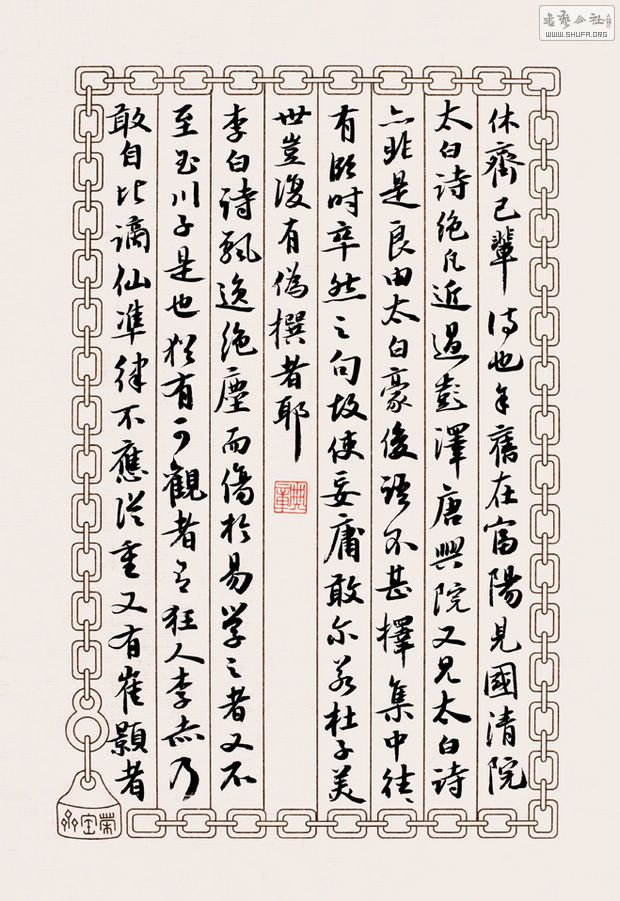 書藝公社
WWW.SHUFA.ORG
休齊己輩詩也予舊在富陽見國清院
太白詩絕凡近過彭澤唐興院又見太白詩
亦非是良由太白豪俊語不甚擇集中往往
有臨時卒然之句故使妄庸敢爾若杜子美
世豈復有偽撰者耶
李白詩飄逸絕塵而傷於易學之者又不
至玉川子是也猶有可觀者有狂人李赤乃
敢自比謫仙準律不應從重又有崔顥者